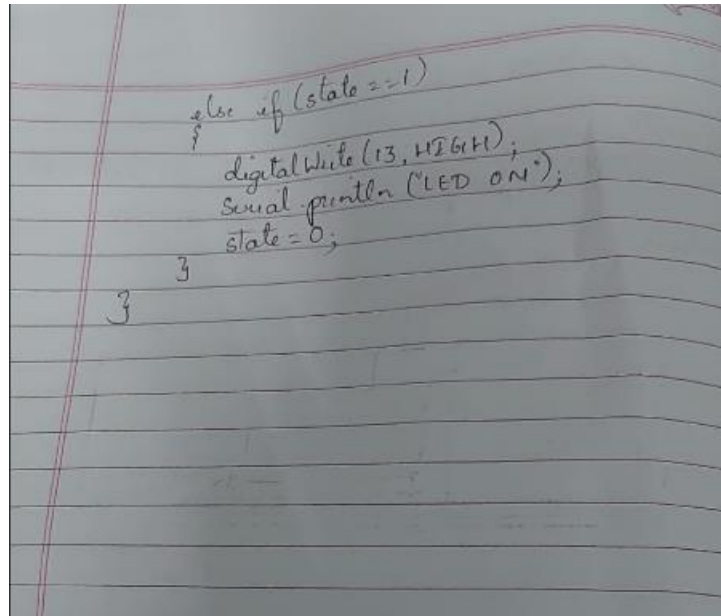 else if (state == 1)
{
digitalWrite (13, HIGH);
Serial.println ("LED ON");
state = 0;
}
}